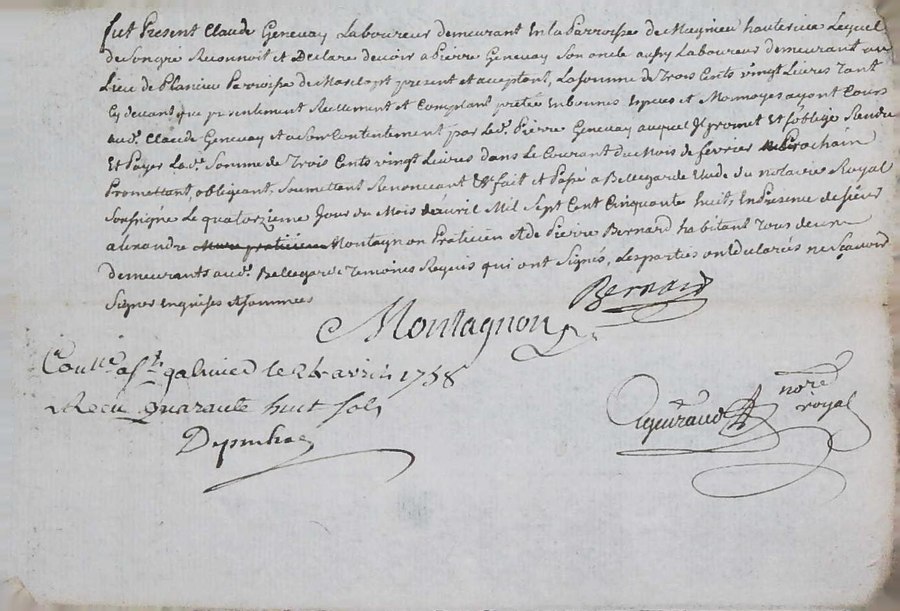 fut Present Claude Genevay Laboureur demeurant En la Parroisse de Meynieu hauterive Lequel
de Son gré Reconnoit et Declare devoir a Pierre Genevay Son oncle aussy Laboureur demeurant au
Lieu de Planieu Parroisse de present et acceptant, La somme de Trois Cents vingt Livres Tant
Cy devant que presentement Reellement et Comptant pretée En bonnes Especes et Monnoyes ayant Cours
aud. Claude Genevay et a Son Contentement par Led. Pierre Genevay auquel Il promet Et s'oblige Rendre
Et Payer Lad. Somme de Trois Cents vingt Livres dans Le Courant du Mois de fevrier Prochain
Promettant, obligeant, Soumettant Renonceant &. fait et Passé a Bellegarde Etude du notaire Royal
Soussigné Le quatorzieme Jour du Mois d'avril Mil Sept Cent Cinquante huit, En Presence de Sieur
alexandre Montagnon Praticien et de Pierre Bernard habitant Tous deux
demeurants aud. Bellegarde Temoins Requis qui ont Signés, Les parties ont declarés ne Sçavoir
Signer Enquises et Sommées
Bernard
Montagnon
Conllé a St galmier le 24 avril 1758
Reçu quarante huit sols
nore
royal